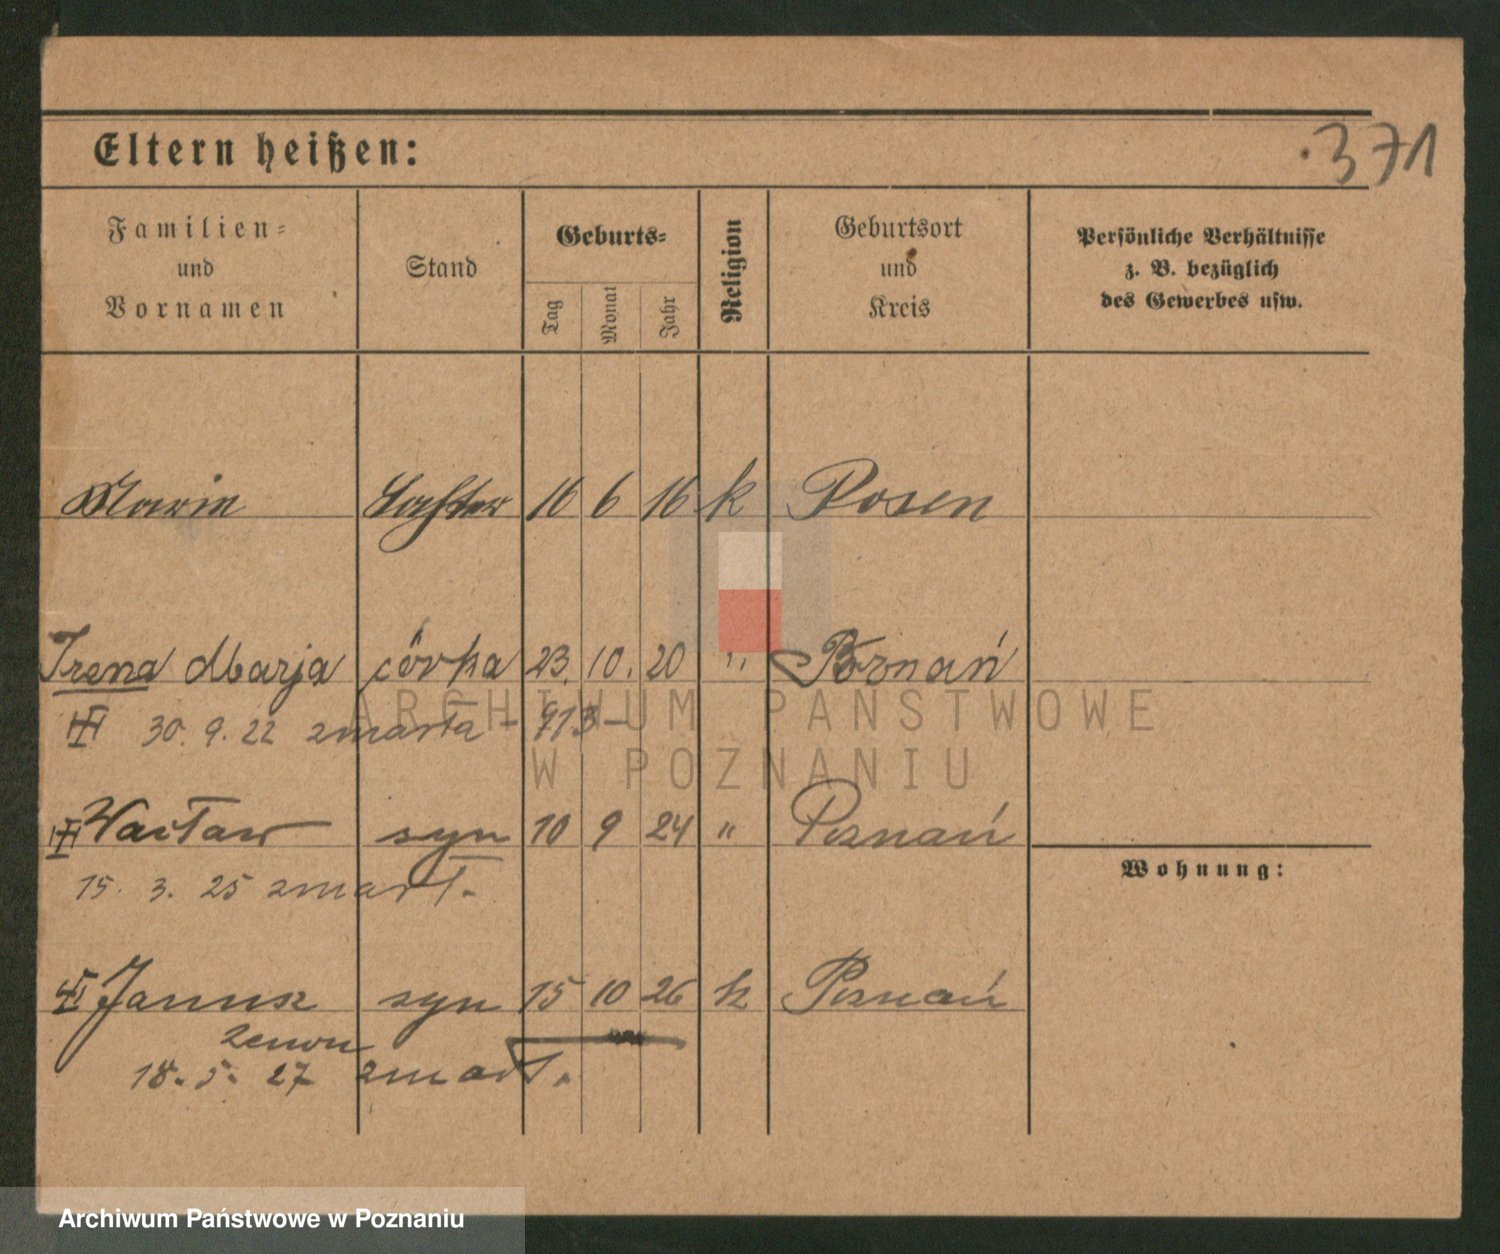 Eltern heißen:
371
Familien- und Vornamen
Stand
Geburts-
Tag
Monat
Jahr
Religion
Geburtsort und Kreis
Persönliche Verhältnisse z. B. bezüglich des Gewerbes usw.
Marie Tochter 16 6 16 k Posen
Irena Marja córka 23. 10. 20 " Poznań
30. 9. 22 zmarła - 913 -
Wacław syn 10 9 24 " Poznań
Wohnung:
15. 3. 25 zmarł.
Janusz syn 15 10 26 k Poznań
Zenon
18. 5. 27 zmarł.
ARCHIWUM PAŃSTWOWE
W POZNANIU
Archiwum Państwowe w Poznaniu